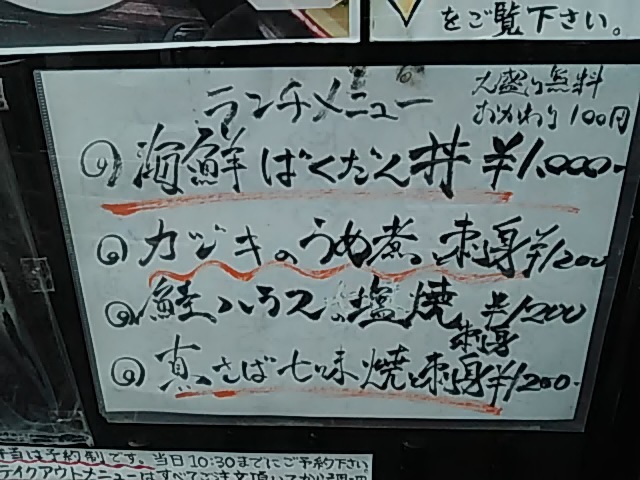 をご覧下さい。
ランチメニュー
大盛り無料
おかわり100円
海鮮ばくだん丼 ¥1,000-
カジキのうめ煮、刺身 ¥1200
鮭ハラスの塩焼 ¥1200
刺身
真さば七味焼と刺身 ¥1200-
は予約制です。当日10:30までにご予約下さい
テイクアウトメニューはすべてご注文頂いてから